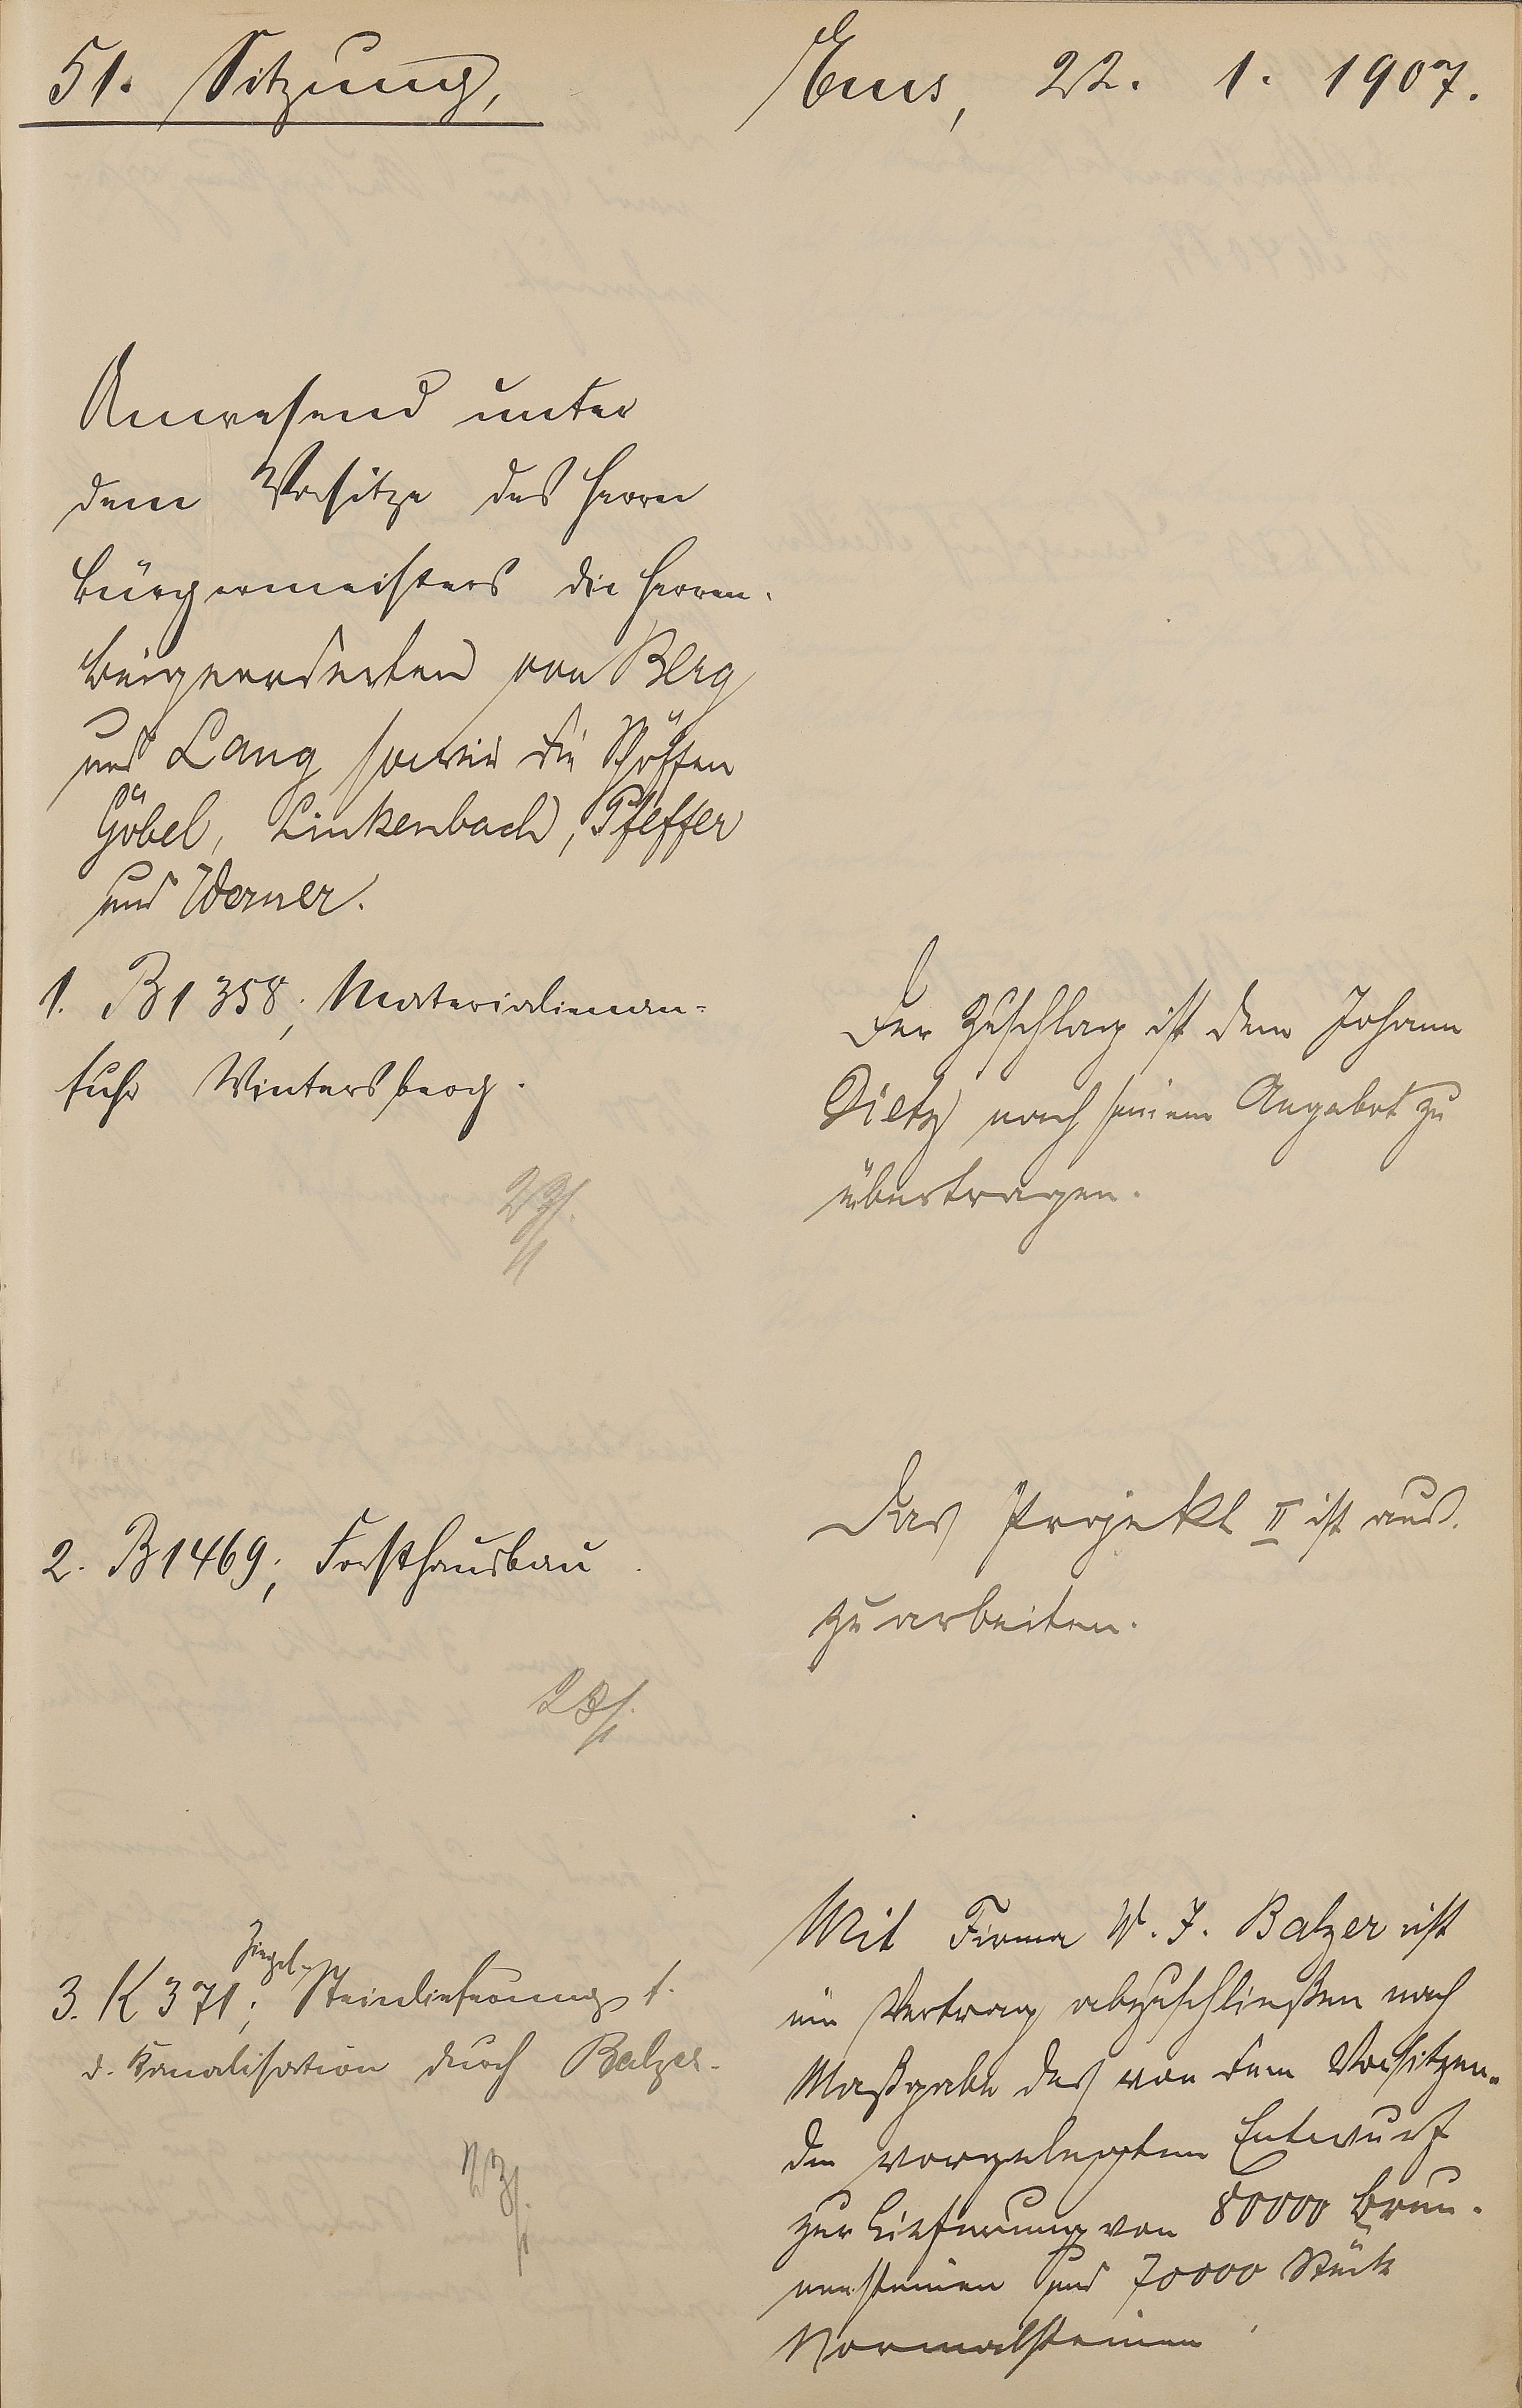 51. Sitzung,
Ems, 22. 1. 1907.
Anwesend unter
dem Vorsitze des Herrn
Bürgermeisters die Herren
Beigeordneten von Berg
und Lang sowie die Schöffen
Göbel, Linkenbach, Pfeffer
und Werner.
1. B 1358; Materialienan-
fuhr Wintersberg.
Der Zuschlag ist dem Johann
Dietz nach seinem Angebot zu
übertragen.
23/1.
2. B 1469; Forsthausbau.
Das Projekt II ist aus-
zuarbeiten.
23/1.
Ziegel-
3. K 371; Steinlieferung f.
d. Kanalisation durch Balzer.
23/1.
Mit Firma W. J. Balzer ist
ein Vertrag abzuschließen nach
Maßgabe des von dem Vorsitzen-
den vorgelegten Entwurf
zur Lieferung von 80000 Brun-
nensteinen und 70000 Stück
Normalsteinen.